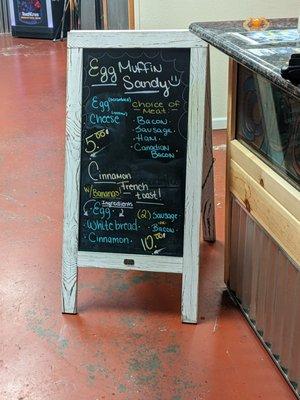 Egg Muffin
Sandy
Egg (scrambled)
Cheese
5.00
choice of
Meat.
Bacon
Sausage
Ham
Canadian
Bacon
Cinnamon
w/ Bananas French
toast!
Ingredients
2 Egg 2
White bread
Cinnamon
(2) Sausage
or
Bacon
10.00